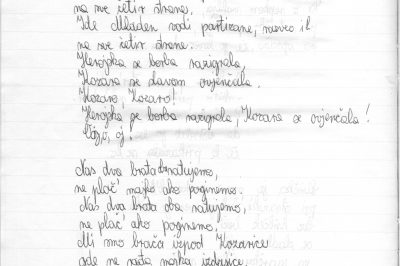 na sve četir strane.
Ide Mladen vodi partizane, razveo ih
na sve četir strane.
Herojska se borba razigrala,
Kozara se slavom ovjenčala.
Kozaro, Kozaro!
Herojska se borba razigrala, Kozara se ovjenčala!
oj!
Nas dva brata oba ratujemo,
ne plač' majko ako poginemo.
Nas dva brata oba ratujemo,
ne plač' ako poginemo.
Mi smo braća ispod Kozarice
gde ne rađa majka izdajice